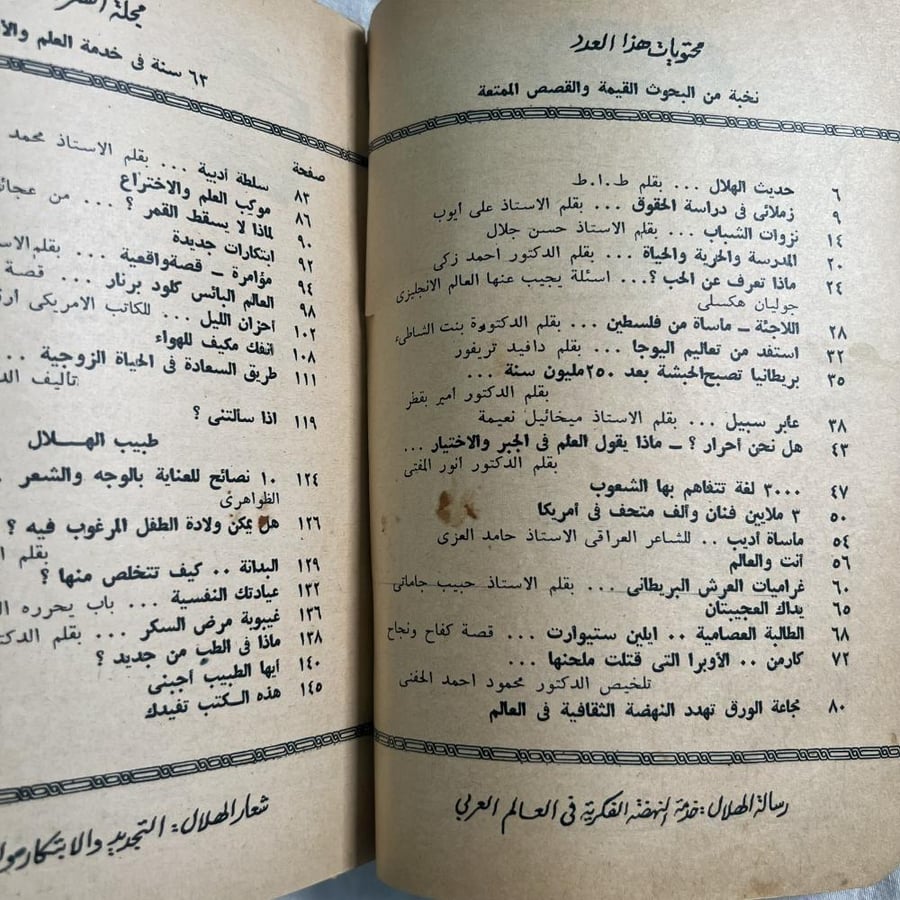 محتويات هذا العدد
نخبة من البحوث القيمة والقصص الممتعة
٦ حديث الهلال ... بقلم ط.ا.ط
٩ زملائى فى دراسة الحقوق ... بقلم الاستاذ على أيوب
١٤ نزوات الشباب ... بقلم الاستاذ حسن جلال
٢٠ المدرسة والحرية والحياة ... بقلم الدكتور احمد زكى
٢٤ ماذا تعرف عن الحب ؟... اسئلة يجيب عنها العالم الانجليزى
جوليان هكسلى
٢٨ اللاجئة ــ مأساة من فلسطين ... بقلم الدكتورة بنت الشاطىء
٣٢ استفد من تعاليم اليوجا ... بقلم دافيد تريفور
٣٥ بريطانيا تصبح الحبشة بعد ٢٥٠ مليون سنة ...
بقلم الدكتور امير بقطر
٣٨ عابر سبيل ... بقلم الاستاذ ميخائيل نعيمة
٤٣ هل نحن أحرار ؟ ــ ماذا يقول العلم فى الجبر والاختيار ...
بقلم الدكتور أنور المفتى
٤٧ ٣٠٠٠ لغة تتفاهم بها الشعوب
٥٠ ٣ ملايين فنان وألف متحف فى أمريكا
٥٤ مأساة أديب .. للشاعر العراقى الاستاذ حامد العزى
٥٦ أنت والعالم
٦٠ غراميات العرش البريطانى ... بقلم الاستاذ حبيب جاماتى
٦٥ يداك العجيبتان
٦٨ الطالبة العصامية .. ايلين ستيوارت ... قصة كفاح ونجاح
٧٢ كارمن .. الأوبرا التى قتلت ملحنها ...
تلخيص الدكتور محمود احمد الحفنى
٨٠ مجاعة الورق تهدد النهضة الثقافية فى العالم
رسالة الهلال : خدمة النهضة الفكرية فى العالم العربي
مجلة
٦٣ سنة فى خدمة العلم
صفحة
٨٣ سلطة أدبية ... بقلم الاستاذ محمد
٨٦ موكب العلم والاختراع
٩٠ لماذا لا يسقط القمر ؟ ... من
٩٢ ابتكارات جديدة
٩٤ مؤامرة ــ قصة واقعية ... بقلم
٩٨ العالم البائس كلود برنار ... قصة
١٠٢ أحزان الليل ... للكاتب الامريكى
١٠٨ أنفك مكيف للهواء
١١١ طريق السعادة فى الحياة الزوجية ..
تأليف
١١٩ اذا سألتنى ؟
طبيب الهلال
١٢٤ ١٠ نصائح للعناية بالوجه والشعر
الظواهرى
١٢٦ هل يمكن ولادة الطفل المرغوب فيه ؟
بقلم
١٢٩ البدانة .. كيف تتخلص منها ؟
١٣٢ عيادتك النفسية ... باب يحرره
١٣٦ غيبوبة مرض السكر ... بقلم
١٣٨ ماذا فى الطب من جديد ؟
١٤٠ أيها الطبيب أجبنى
١٤٥ هذه الكتب تفيدك
شعار الهلال : التجديد والابتكار